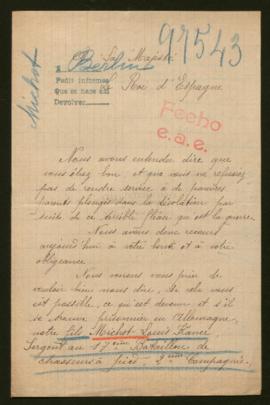 97543
Michot
a Berlin
Sa Majesté
Pedir informes
Que se hace asi
Devolver
Le Roi d'Espagne
Fecho
e.a.e.
Nous avons entendu dire que
vous êtes bon et que vous ne refusez
pas de rendre service à de pauvres
parents plongés dans la désolation par
suite de ce terrible fléau qu'est la guerre.
Nous avons donc recours
aujourd'hui à votre bonté et à votre
obligeance
Nous venons vous prier de
vouloir bien nous dire, si cela vous
est possible, ce qu'est devenu et s'il
se trouve prisonnier en Allemagne,
notre fils Michot Louis
Sergent au 17ème Bataillon de
chasseurs à pied - 2ème Compagnie.